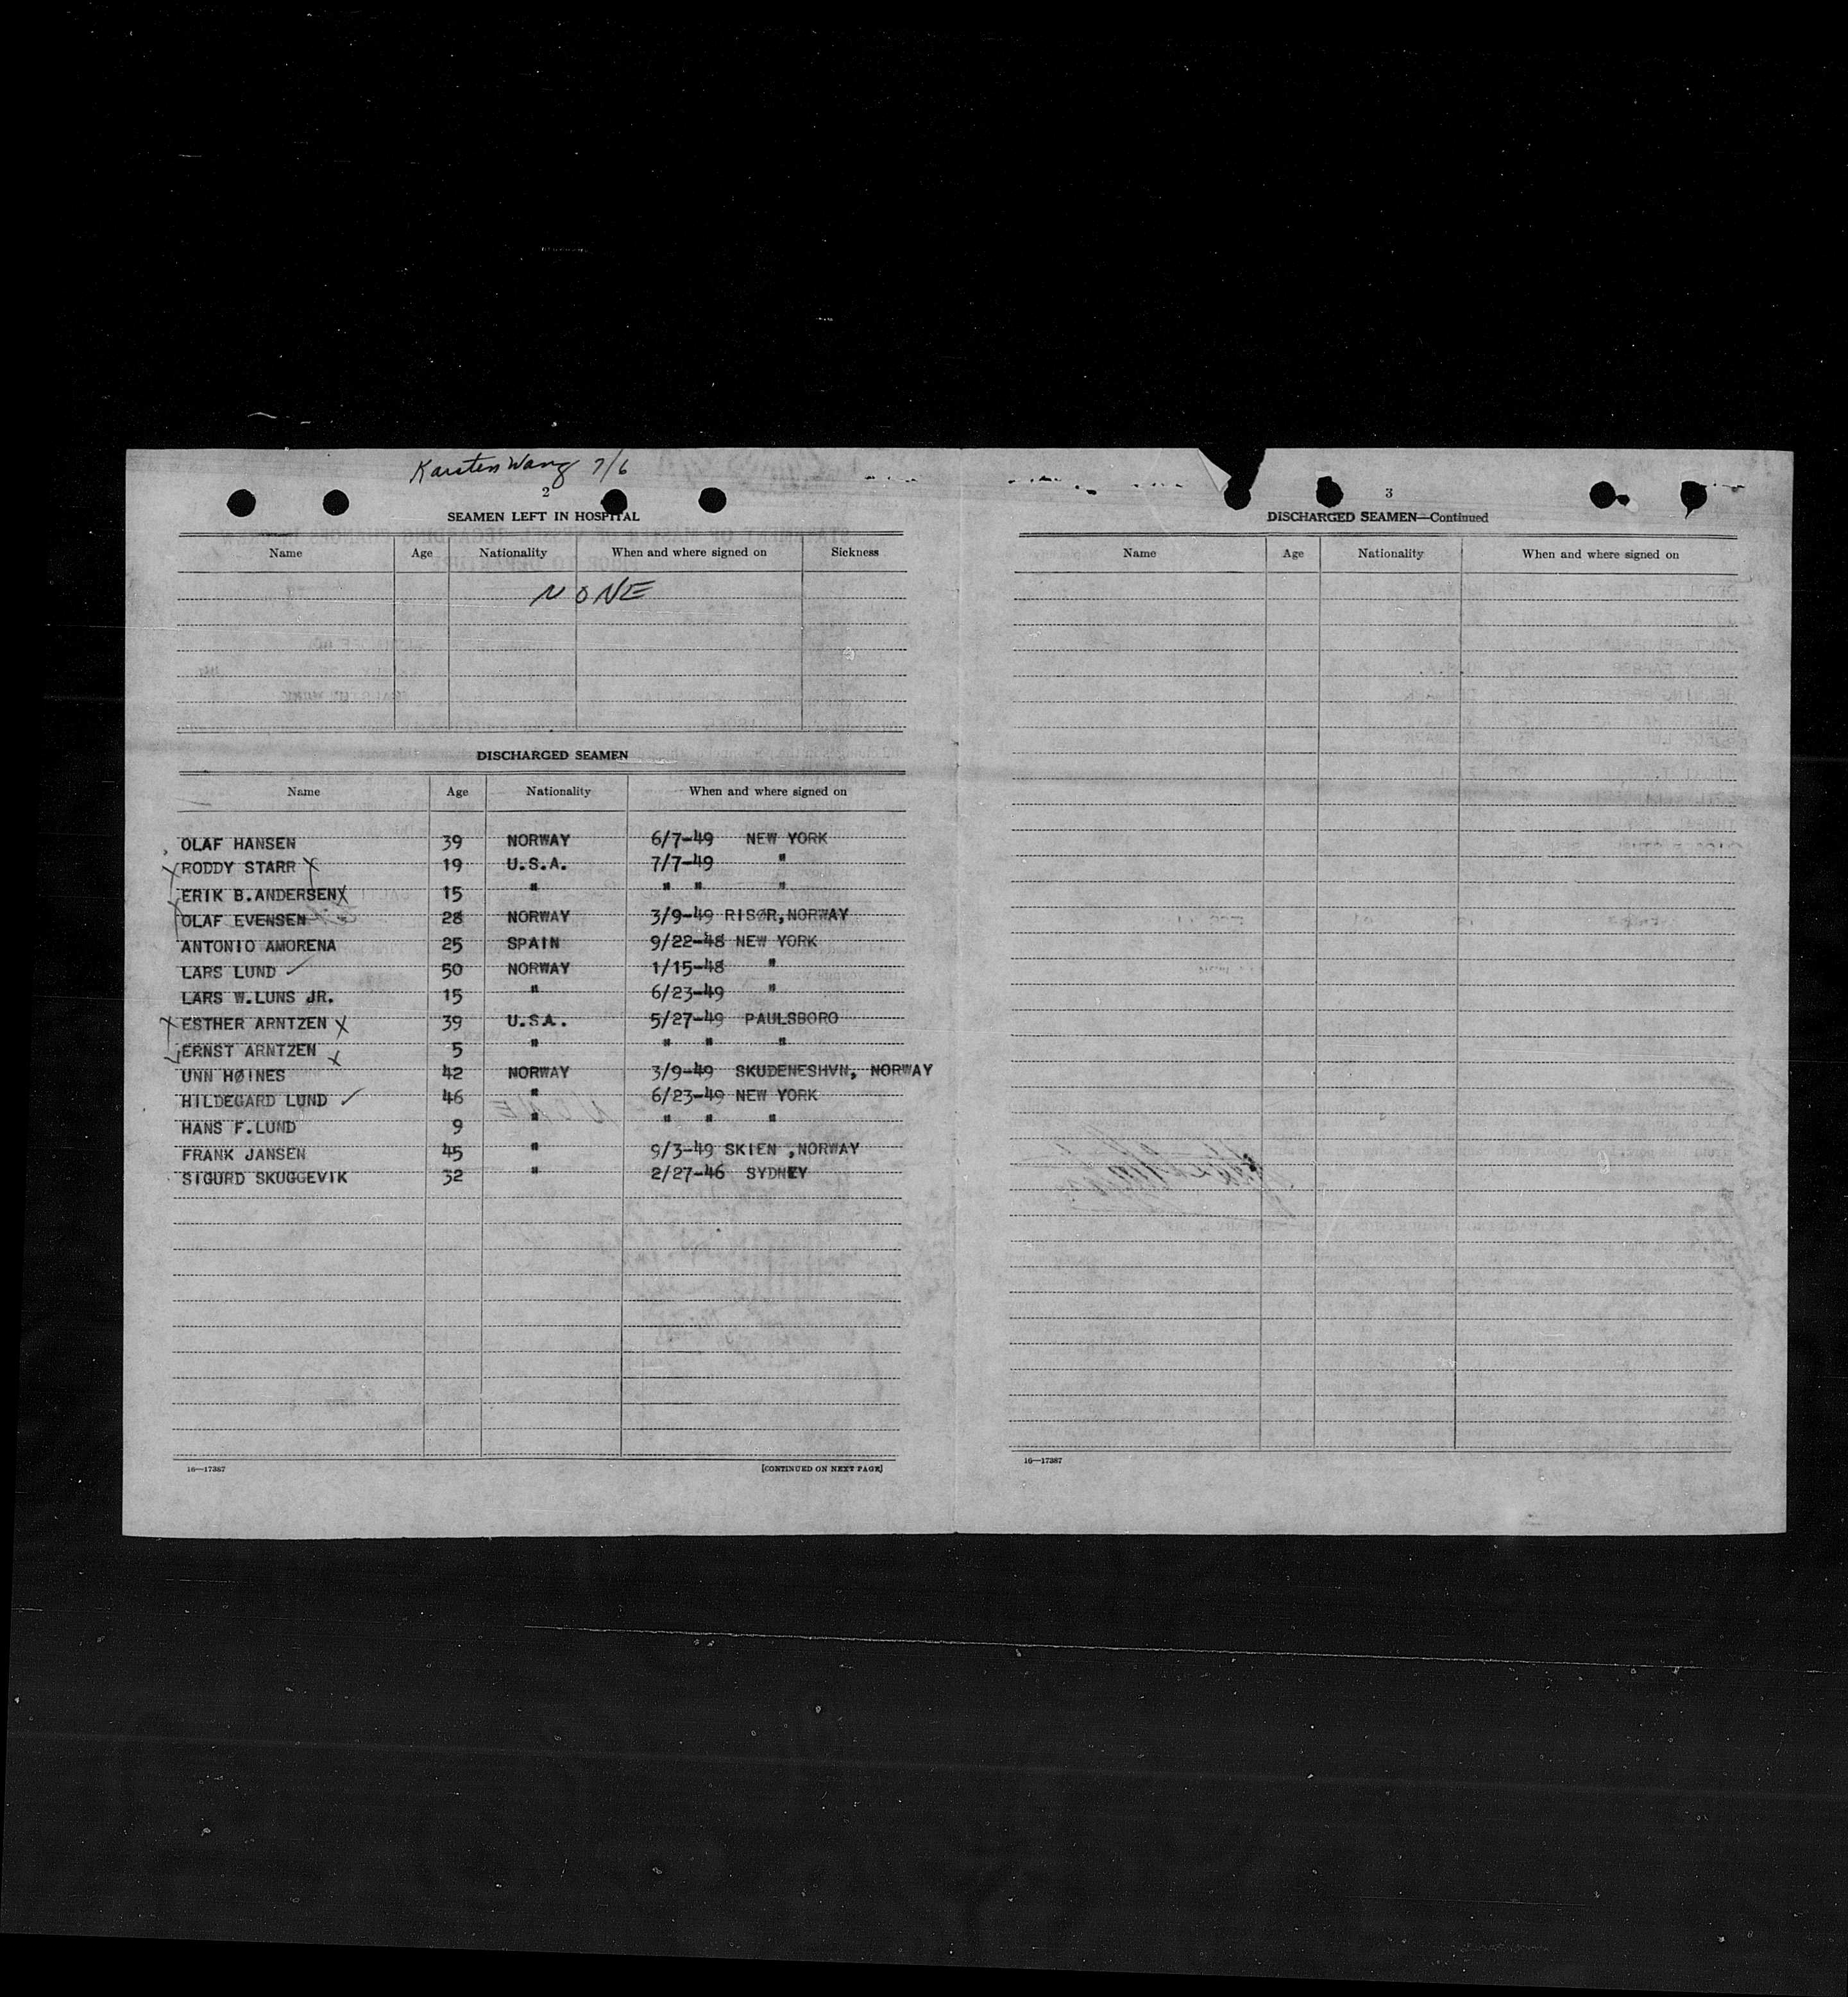 Karsten Wang 7/6
2
SEAMEN LEFT IN HOSPITAL
Name Age Nationality When and where signed on Sickness
NONE
DISCHARGED SEAMEN
Name Age Nationality When and where signed on
OLAF HANSEN 39 NORWAY 6/7-49 NEW YORK
X RODDY STARR X 19 U.S.A. 7/7-49 "
ERIK B.ANDERSEN X 15 " " " "
OLAF EVENSEN 28 NORWAY 3/9-49 RISØR,NORWAY
ANTONIO AMORENA 25 SPAIN 9/22-48 NEW YORK
LARS LUND ✓ 50 NORWAY 1/15-48 "
LARS W.LUNS JR. 15 " 6/23-49 "
X ESTHER ARNTZEN X 39 U.S.A. 5/27-49 PAULSBORO
ERNST ARNTZEN X 5 " " " "
UNN HØINES 42 NORWAY 3/9-49 SKUDENESHVN, NORWAY
HILDEGARD LUND ✓ 46 " 6/23-49 NEW YORK
HANS F.LUND 9 " " " "
FRANK JANSEN 45 " 9/3-49 SKIEN ,NORWAY
SIGURD SKUGGEVIK 32 " 2/27-46 SYDNEY
16—17387 [CONTINUED ON NEXT PAGE]
3
DISCHARGED SEAMEN—Continued
Name Age Nationality When and where signed on
16—17387